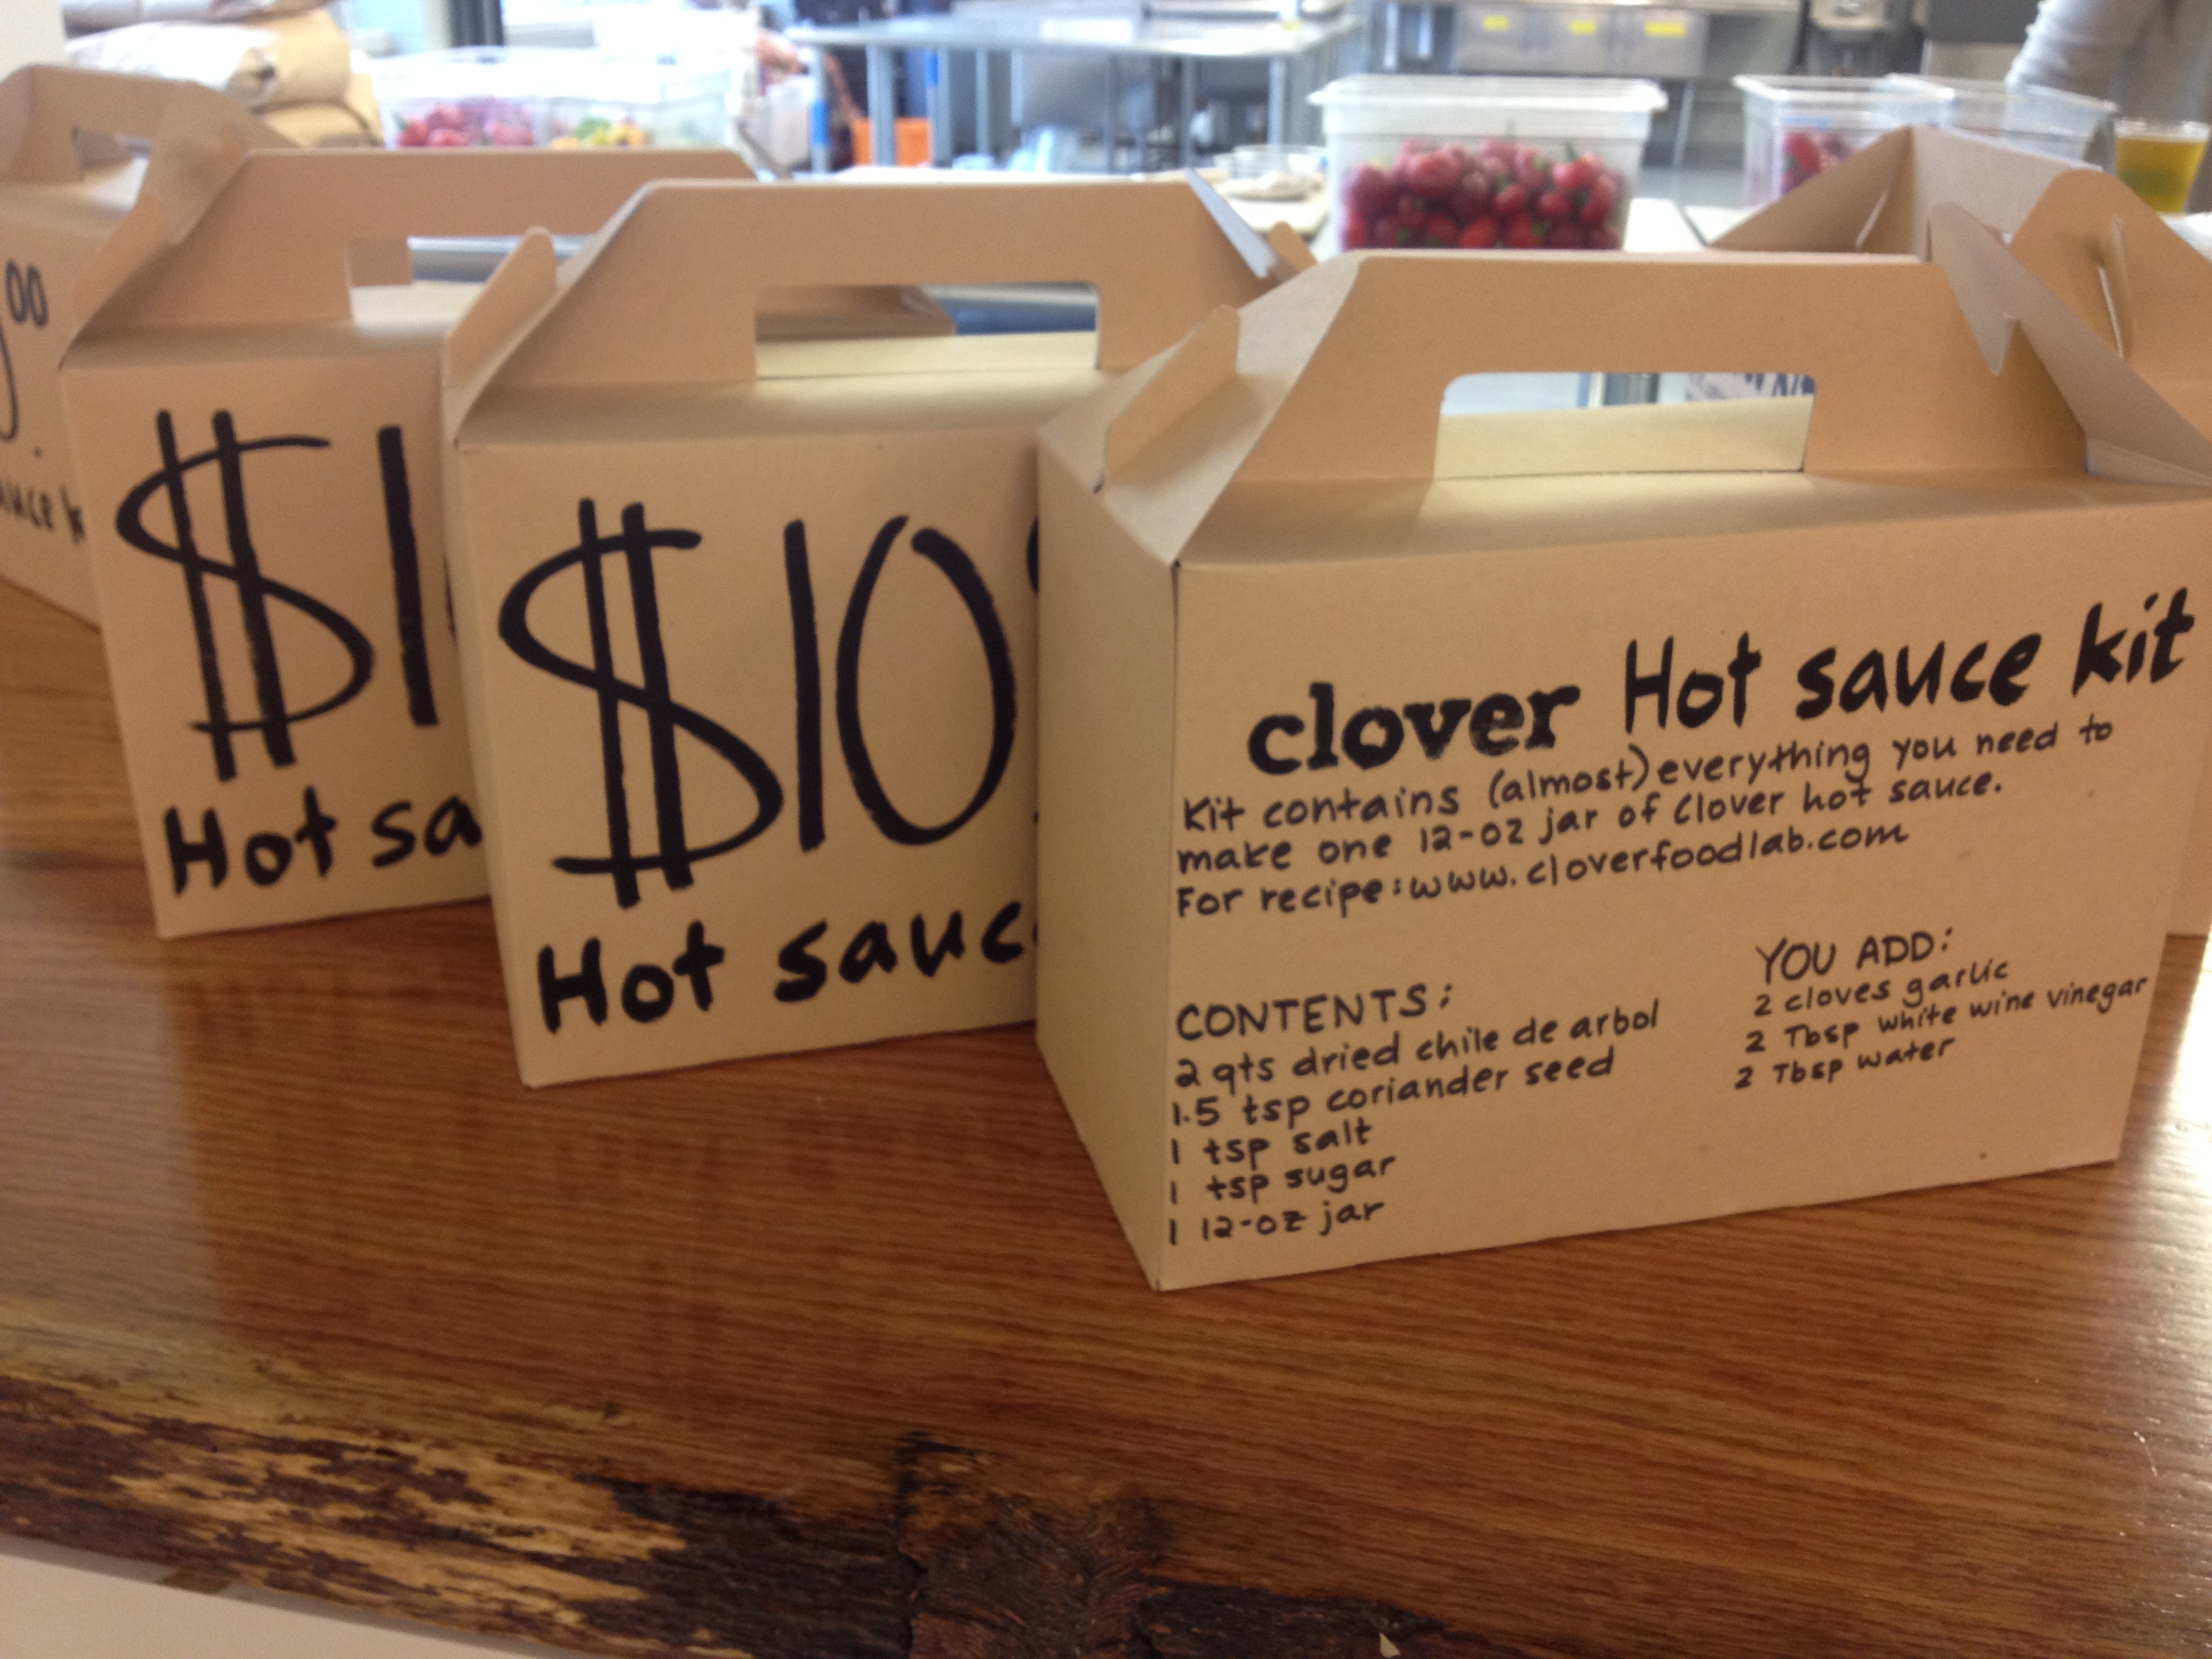 00
$1
Hot sa
$10
Hot sauc
clover Hot sauce kit
Kit contains (almost) everything you need to
make one 12-oz jar of Clover hot sauce.
For recipe: www.cloverfoodlab.com
CONTENTS:
2 qts dried chile de arbol
1.5 tsp coriander seed
1 tsp salt
1 tsp sugar
1 12-oz jar
YOU ADD:
2 cloves garlic
2 Tbsp white wine vinegar
2 Tbsp water